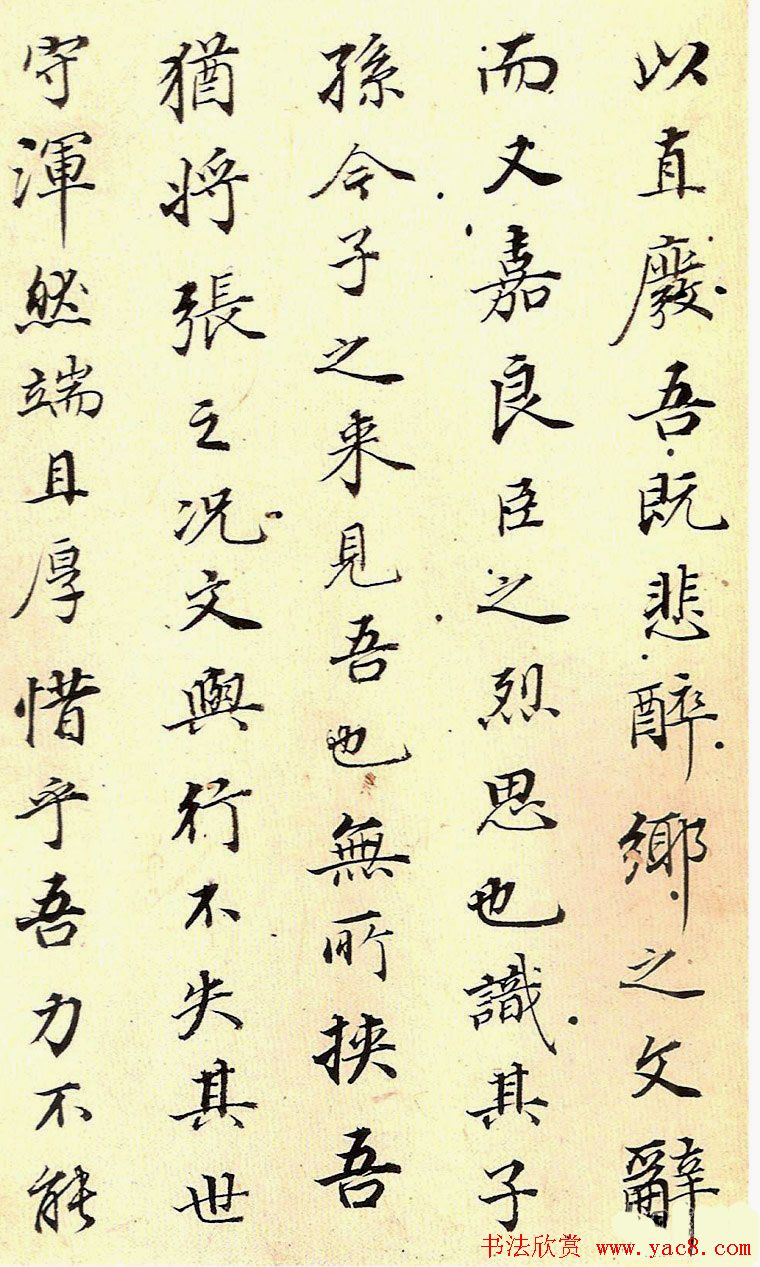 以直廢吾既悲醉鄉之文辭
而又嘉良臣之烈思也識其子
孫今子之来見吾也無所挾吾
猶將張之况文與行不失其世
守渾然端且厚惜乎吾力不能
书法欣赏 www.yac8.com